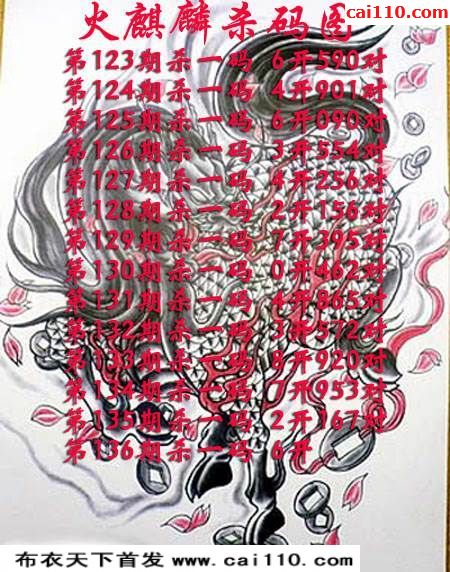 cai110.com
火麒麟杀码图
第123期杀一码 6开590对
第124期杀一码 4开901对
第125期杀一码 6开090对
第126期杀一码 3开554对
第127期杀一码 4开256对
第128期杀一码 2开156对
第129期杀一码 7开395对
第130期杀一码 0开462对
第131期杀一码 4开865对
第132期杀一码 3开572对
第133期杀一码 8开920对
第134期杀一码 7开953对
第135期杀一码 2开167对
第136期杀一码 6开
布衣天下首发 www.cai110.com